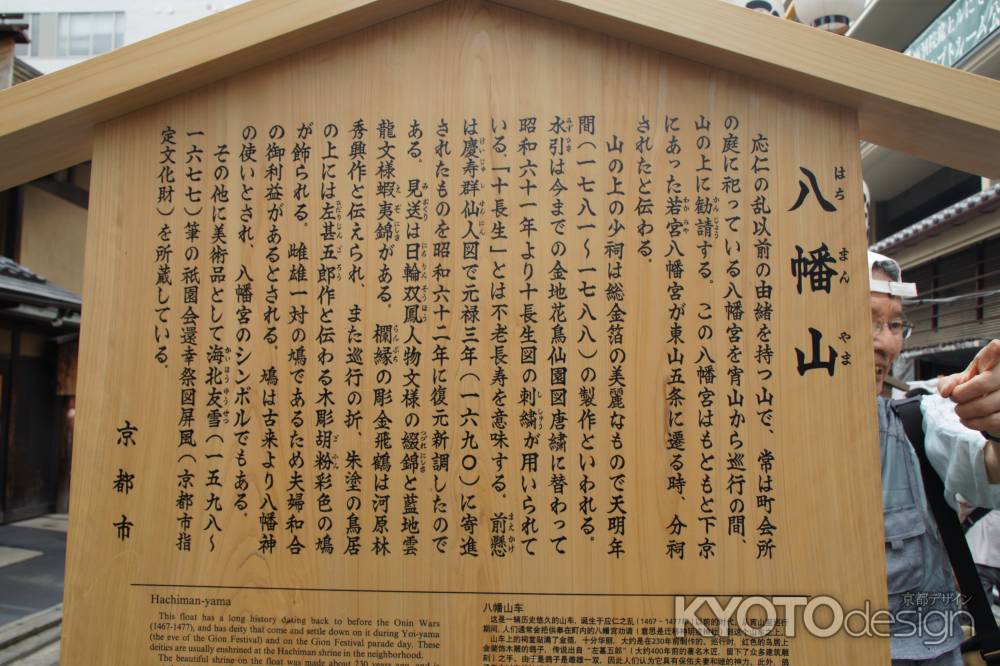 八幡山
はちまんやま
応仁の乱以前の由緒を持つ山で、常は町会所
の庭に祀っている八幡宮を宵山から巡行の間、
山の上に勧請する。この八幡宮はもともと下京
にあった若宮八幡宮が東山五条に遷る時、分祠
されたと伝わる。
山の上の少祠は総金箔の美麗なもので天明年
間(一七八一〜一七八八)の製作といわれる。
水引は今までの金地花鳥仙園図唐繍に替わって
昭和六十一年より十長生図の刺繍が用いられて
いる、「十長生」とは不老長寿を意味する。前懸
は慶寿群仙人図で元禄三年(一六九〇)に寄進
されたものを昭和六十二年に復元新調したので
ある。見送は日輪双鳳人物文様の綴錦と藍地雲
龍文様蝦夷錦がある。欄縁の彫金飛鶴は河原林
秀興作と伝えられ、また巡行の折、朱塗の鳥居
の上には左甚五郎作と伝わる木彫胡粉彩色の鳩
が飾られる。雌雄一対の鳩であるため夫婦和合
の御利益があるとされる。鳩は古来より八幡神
の使いとされ、八幡宮のシンボルでもある。
その他に美術品として海北友雪(一五九八〜
一六七七)筆の祇園会還幸祭図屏風(京都市指
定文化財)を所蔵している。
京都市
Hachiman-yama
This float has a long history dating back to before the Onin Wars
(1467-1477), and has deity that come and settle down on it during Yoi-yama
(the eve of the Gion Festival) and on the Gion Festival parade day. These
deities are usually enshrined at the Hachiman shrine in the neighborhood.
The beautiful shrine on the float was made about 230 years ago, and is
八幡山车
这是一辆历史悠久的山车,诞生于应仁之乱(1467-1477年)以前的时代。
KYOTOdesign
京都デザイン